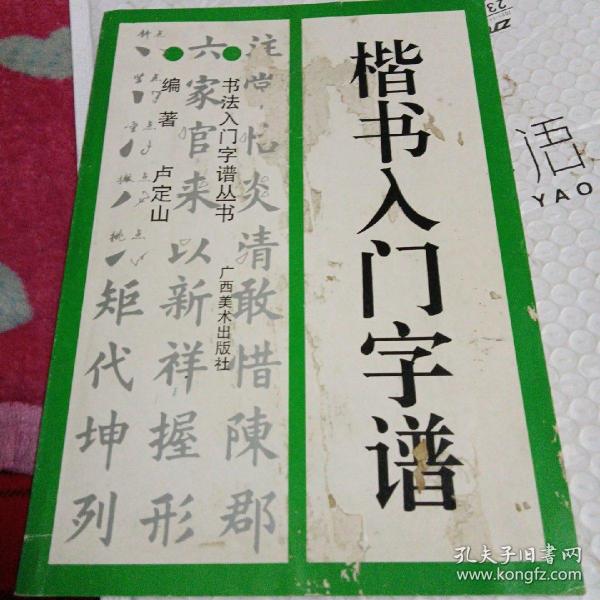 楷书入门字谱
书法入门字谱丛书
广西美术出版社
编著 卢定山
注尝怡炎清敢惜陳郡
六家官来以新祥握形
矩代坤列
斜点
挑点
语
YAO
23
孔夫子旧书网
www.kongfz.com